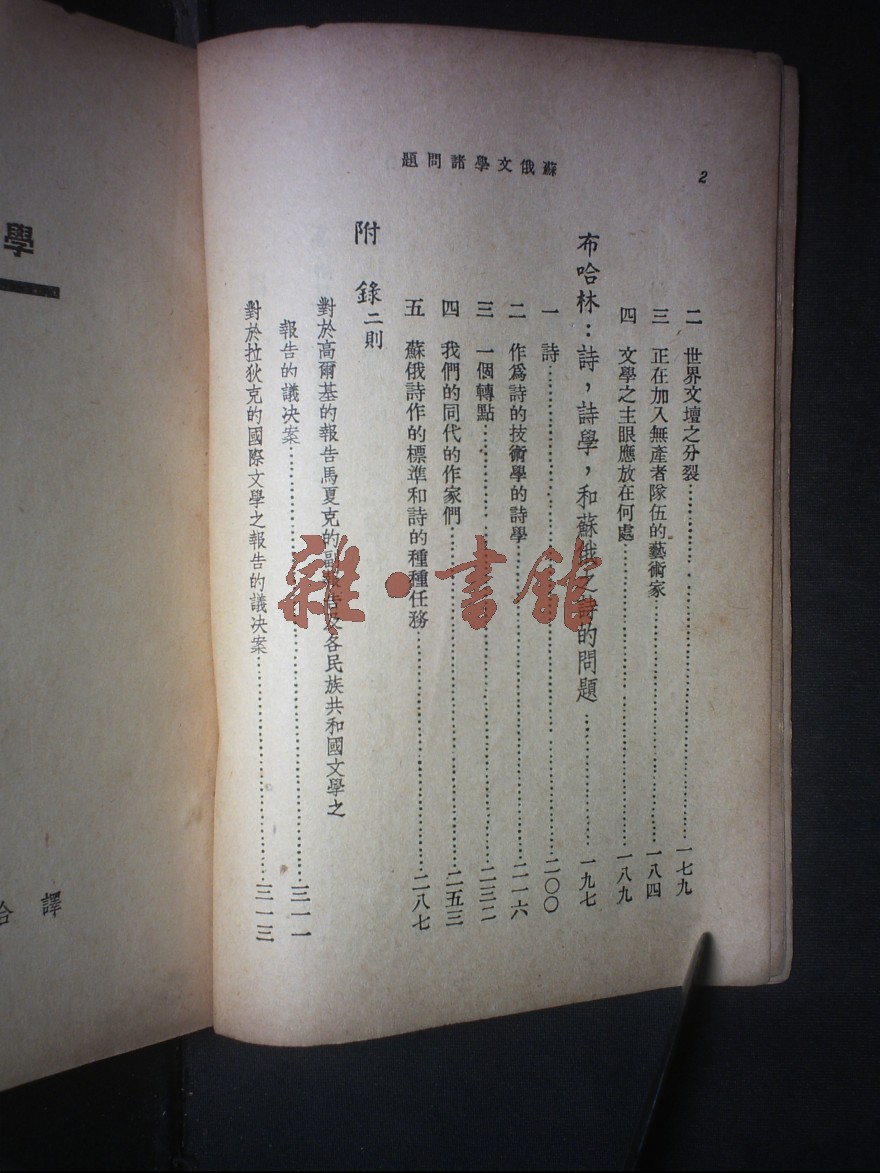 蘇俄文學諸問題
2
二 世界文壇之分裂……一七九
三 正在加入無產者隊伍的藝術家……一八四
四 文學之主眼應放在何處……一八九
布哈林：詩，詩學，和蘇俄之詩的問題……一九七
一 詩……二〇〇
二 作爲詩的技術學的詩學……二一六
三 一個轉點……二三二
四 我們的同代的作家們……二五三
五 蘇俄詩作的標準和詩的種種任務……二八七
附 錄二則
對於高爾基的報告馬夏克的副報告及各民族共和國文學之
報告的議决案……三一一
對於拉狄克的國際文學之報告的議决案……三一三
學
譯
雜·書館